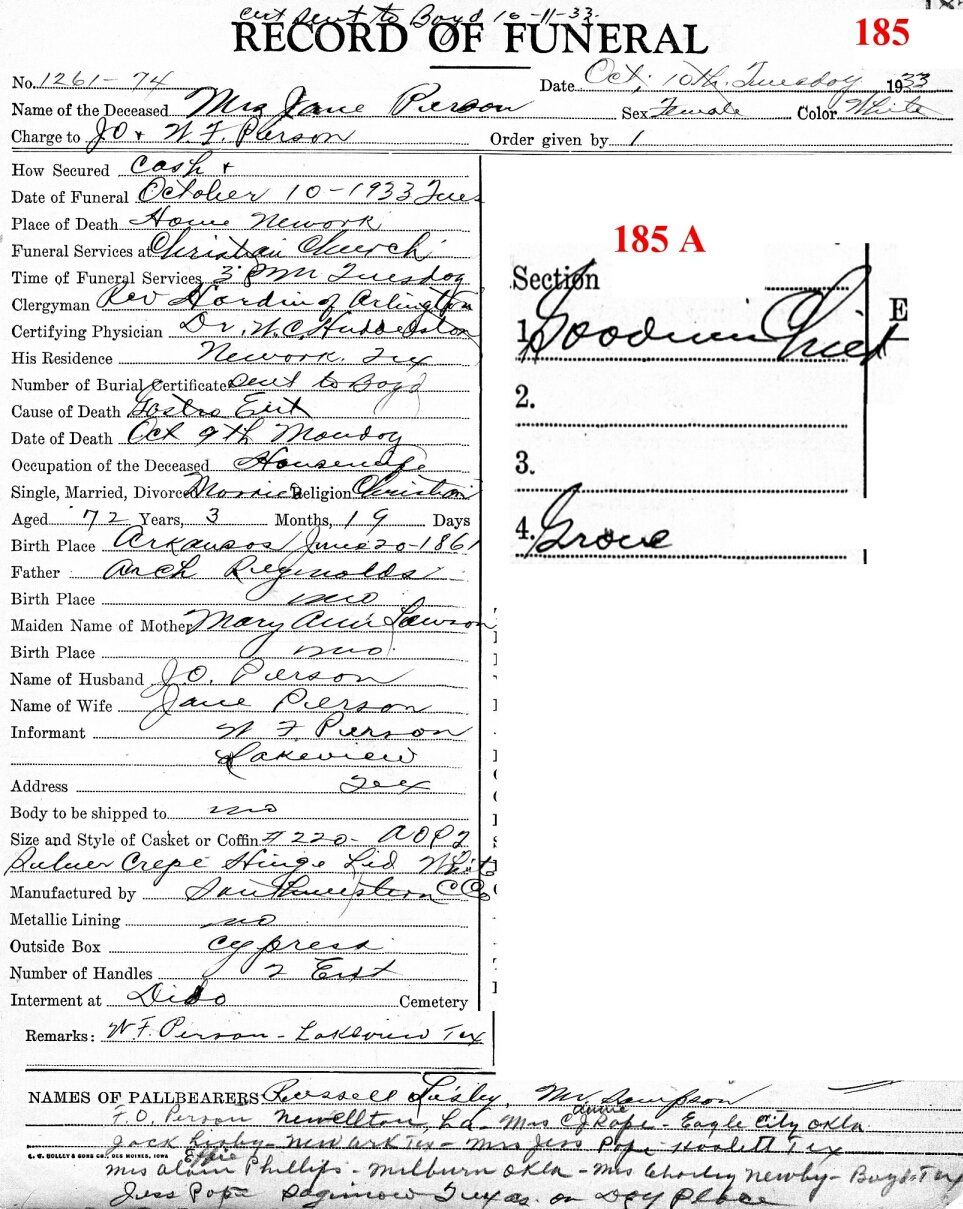 cert sent to Boyd 10-11-33.
RECORD OF FUNERAL
185
No. 1261-74 Date Oct; 10th, Tuesday 1933
Name of the Deceased Mrs Jane Pierson Sex Female Color White
Charge to JO + W. F. Pierson Order given by 1
How Secured Cash +
Date of Funeral October 10-1933 Tues
Place of Death Home Nework
Funeral Services at Christian Church
Time of Funeral Services 3 PM Tuesday
Clergyman Rev Hardin of Arlington
Certifying Physician Dr. W.C. Huddleston
His Residence Nework. Tex
Number of Burial Certificate sent to Boyd
Cause of Death Gastro Erit
Date of Death Oct 9th Monday
Occupation of the Deceased Housewife
Single, Married, Divorced Married Religion Christian
Aged 72 Years, 3 Months, 19 Days
Birth Place Arkansas June 20-1861
Father Arch Reginolds
Birth Place mo
Maiden Name of Mother Mary Ann Lawson
Birth Place mo.
Name of Husband J.O. Pierson
Name of Wife Jane Pierson
Informant W F Pierson
Lakeview
Address Tex
Body to be shipped to no
Size and Style of Casket or Coffin # 220- AOP2
Crepe Hinge Lid White
Manufactured by Southwestern C Co
Metallic Lining no
Outside Box cypress
Number of Handles 2 Ext
Interment at Dido Cemetery
Remarks: W.F. Pierson - Lakeview Tex
185 A
Section
1. Goodwin Chief E
2.
3.
4. Grove
NAMES OF PALLBEARERS: Russell Lisby, Mr. Sampson
F. O. Pierson Newellton, La - Mrs C J Pope - Eagle City Okla
Annie
Jack Risby - Newark Tex - Mrs Jess Pope - Haslett Tex
G. W. HOLLEY & SONS CO. DES MOINES, IOWA
Effie
Mrs Alvin Phillips - Milburn Okla - Mrs Charley Newby - Boyd Tex
Jess Pope Saginaw Texas. on Day Place